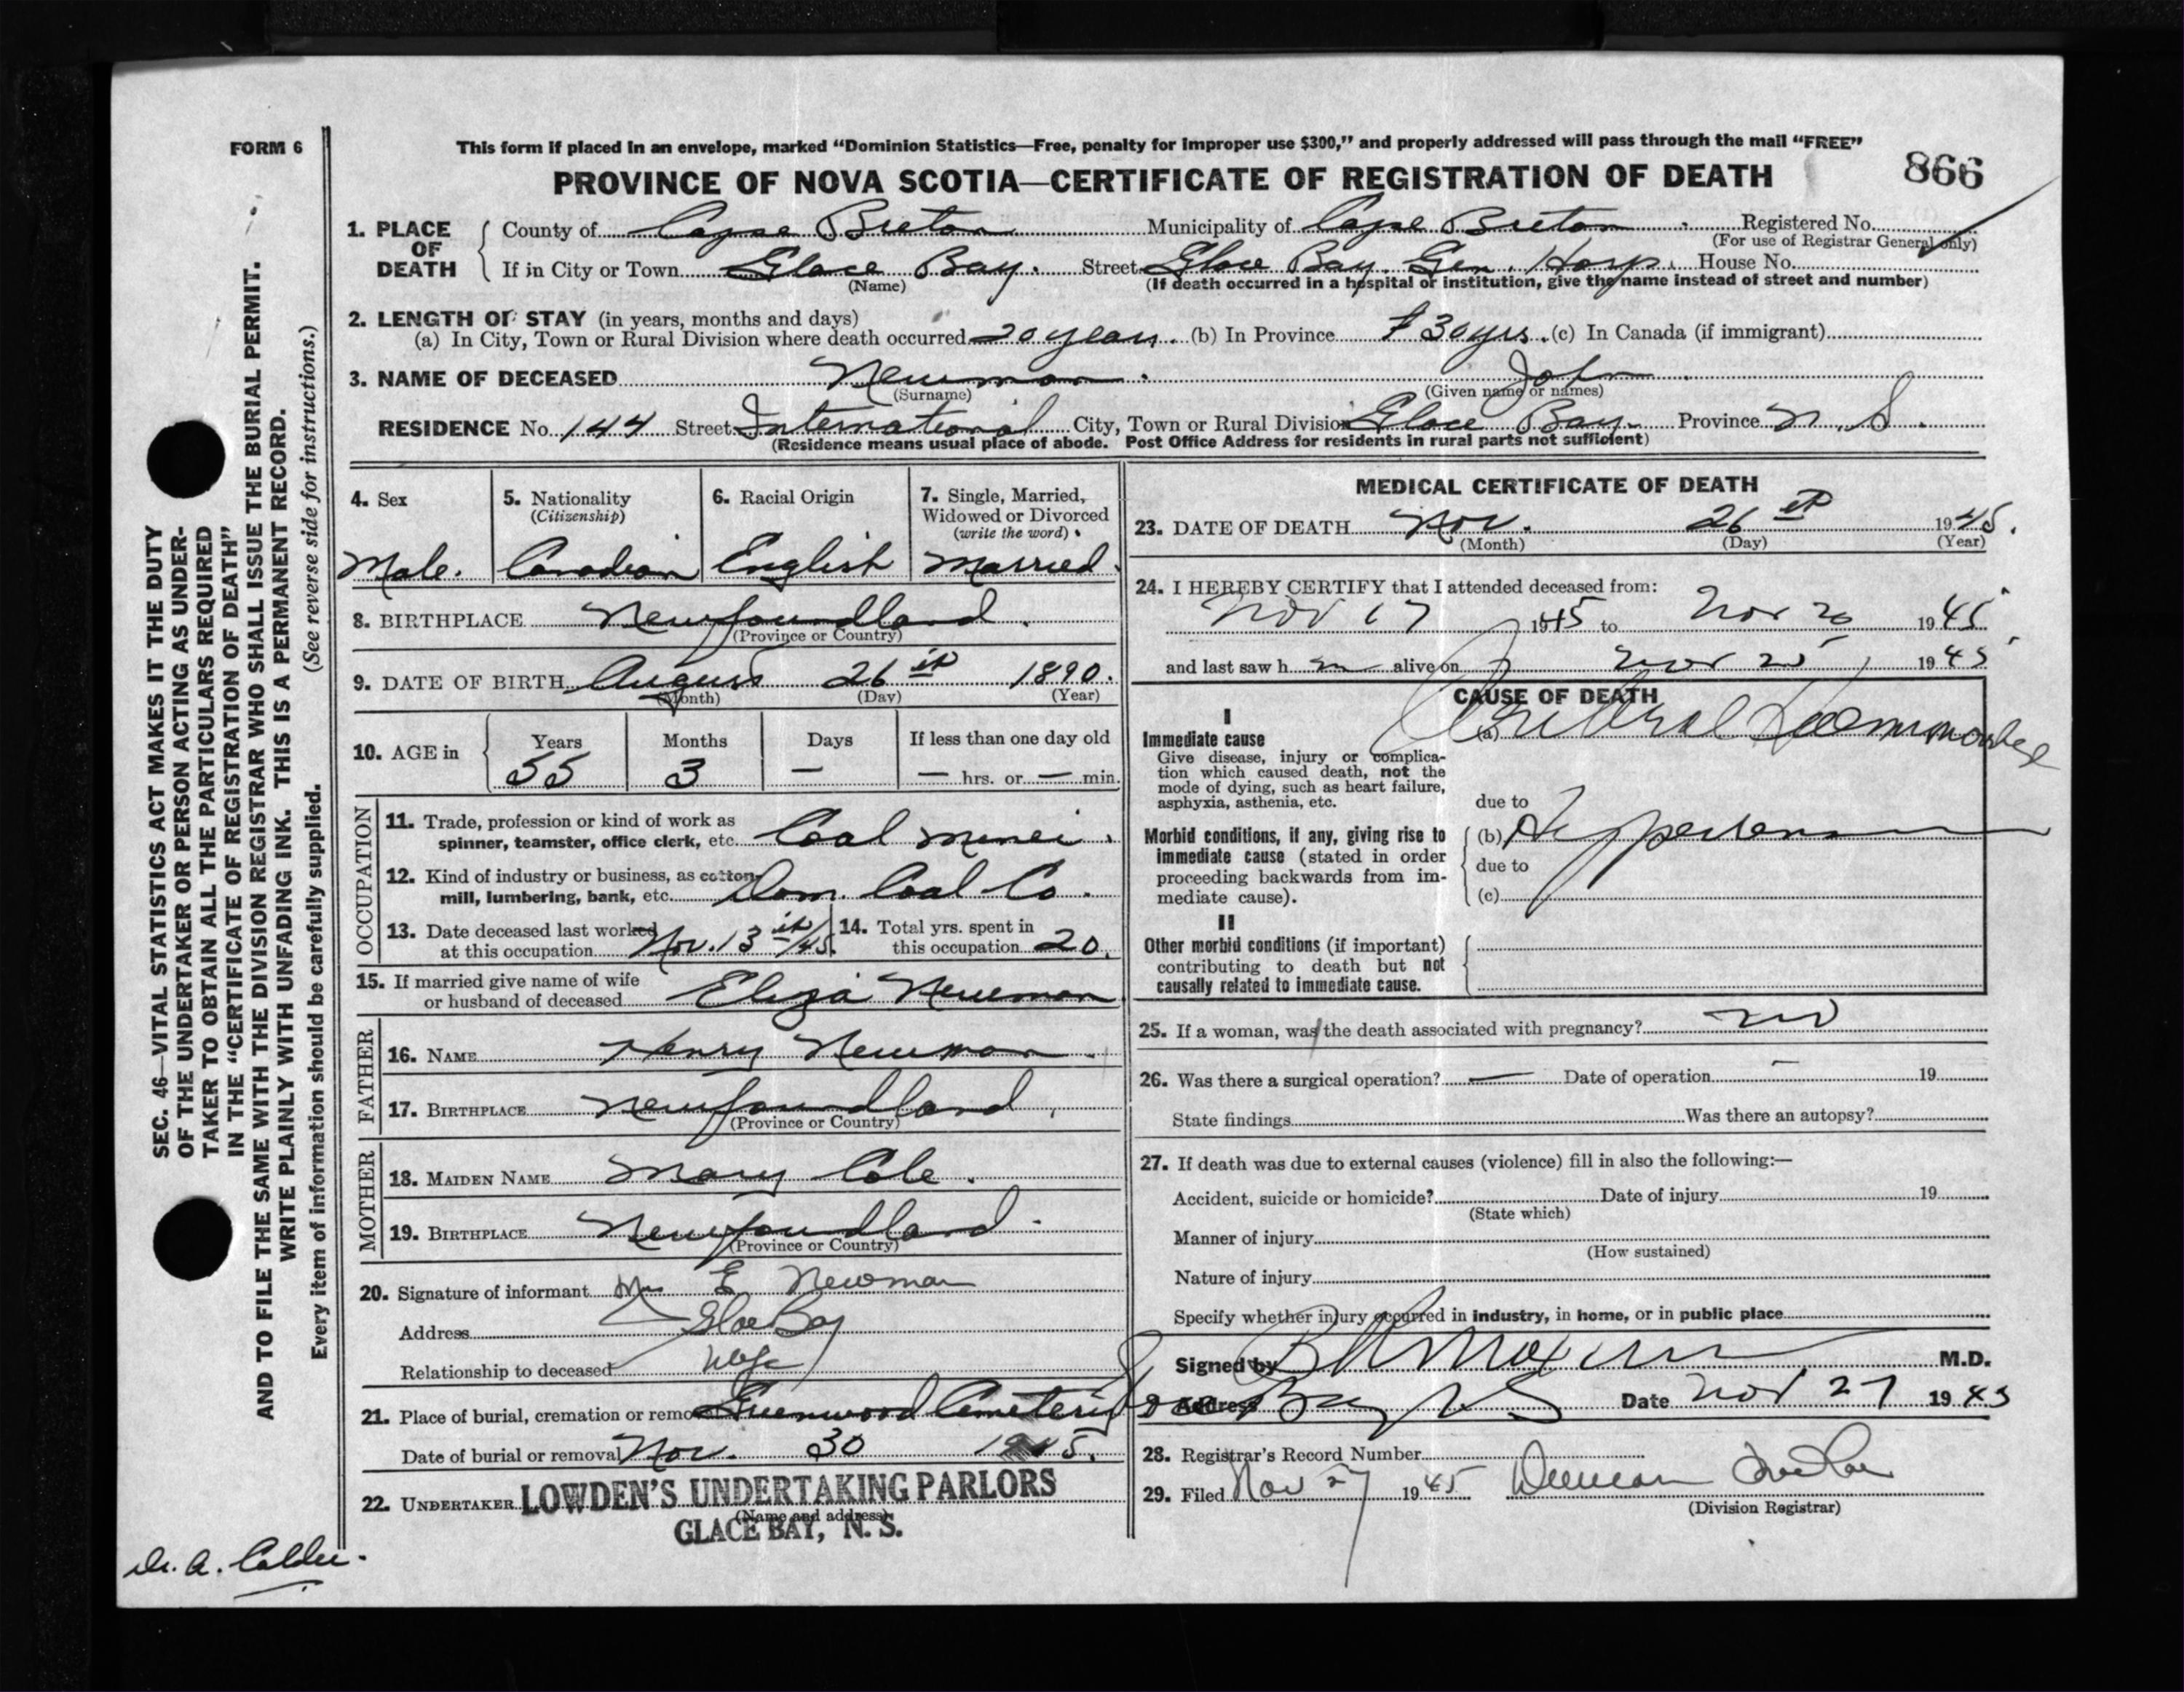 FORM 6
This form if placed in an envelope, marked "Dominion Statistics—Free, penalty for improper use $300," and properly addressed will pass through the mail "FREE"
PROVINCE OF NOVA SCOTIA—CERTIFICATE OF REGISTRATION OF DEATH
866
1. PLACE OF DEATH
County of Cape Breton Municipality of Cape Breton Registered No.
(For use of Registrar General only)
If in City or Town Glace Bay. Street Glace Bay Gen. Hosp. House No.
(Name) (If death occurred in a hospital or institution, give the name instead of street and number)
2. LENGTH OF STAY (in years, months and days)
(a) In City, Town or Rural Division where death occurred 20 years. (b) In Province 30 yrs. (c) In Canada (if immigrant)
3. NAME OF DECEASED Newman. John
(Surname) (Given name or names)
RESIDENCE No. 144 Street International City, Town or Rural Division Glace Bay. Province N.S.
(Residence means usual place of abode. Post Office Address for residents in rural parts not sufficient)
4. Sex
Male.
5. Nationality
(Citizenship)
Canadian
6. Racial Origin
English
7. Single, Married,
Widowed or Divorced
(write the word)
Married.
8. BIRTHPLACE Newfoundland.
(Province or Country)
9. DATE OF BIRTH August 26th 1890.
(Month) (Day) (Year)
10. AGE in Years Months Days If less than one day old
55 3 — — hrs. or — min.
OCCUPATION
11. Trade, profession or kind of work as
spinner, teamster, office clerk, etc. Coal miner.
12. Kind of industry or business, as cotton-
mill, lumbering, bank, etc. Dom. Coal Co.
13. Date deceased last worked
at this occupation Nov. 13th/45.
14. Total yrs. spent in
this occupation 20.
15. If married give name of wife
or husband of deceased Eliza Newman
FATHER
16. NAME Henry Newman.
17. BIRTHPLACE Newfoundland.
(Province or Country)
MOTHER
18. MAIDEN NAME Mary Cole.
19. BIRTHPLACE Newfoundland.
(Province or Country)
20. Signature of informant Mrs E Newman
Address Glace Bay
Relationship to deceased Wife
21. Place of burial, cremation or removal Greenwood Cemetery
Date of burial or removal Nov. 30 1945.
22. UNDERTAKER LOWDEN'S UNDERTAKING PARLORS
(Name and address)
GLACE BAY, N. S.
MEDICAL CERTIFICATE OF DEATH
23. DATE OF DEATH Nov. 26th 1945.
(Month) (Day) (Year)
24. I HEREBY CERTIFY that I attended deceased from:
Nov 17 1945 to Nov 26 1945
and last saw h m alive on Nov 25 1945
CAUSE OF DEATH
I
Immediate cause
Give disease, injury or complica-
tion which caused death, not the
mode of dying, such as heart failure,
asphyxia, asthenia, etc.
(a) Cerebral Haemorrhage
due to
Morbid conditions, if any, giving rise to
immediate cause (stated in order
proceeding backwards from im-
mediate cause).
(b) Hypertension
due to
(c)
II
Other morbid conditions (if important)
contributing to death but not
causally related to immediate cause.
25. If a woman, was the death associated with pregnancy? no
26. Was there a surgical operation? — Date of operation — 19
State findings Was there an autopsy?
27. If death was due to external causes (violence) fill in also the following:—
Accident, suicide or homicide? Date of injury 19
(State which)
Manner of injury
(How sustained)
Nature of injury
Specify whether injury occurred in industry, in home, or in public place
Signed by M.D.
Address Glace Bay NS Date Nov 27 1945
28. Registrar's Record Number
29. Filed Nov 27 1945 Duncan
(Division Registrar)
SEC. 46—VITAL STATISTICS ACT MAKES IT THE DUTY
OF THE UNDERTAKER OR PERSON ACTING AS UNDER-
TAKER TO OBTAIN ALL THE PARTICULARS REQUIRED
IN THE "CERTIFICATE OF REGISTRATION OF DEATH"
AND TO FILE THE SAME WITH THE DIVISION REGISTRAR WHO SHALL ISSUE THE BURIAL PERMIT.
WRITE PLAINLY WITH UNFADING INK. THIS IS A PERMANENT RECORD.
Every item of information should be carefully supplied. (See reverse side for instructions.)
A. Calder.